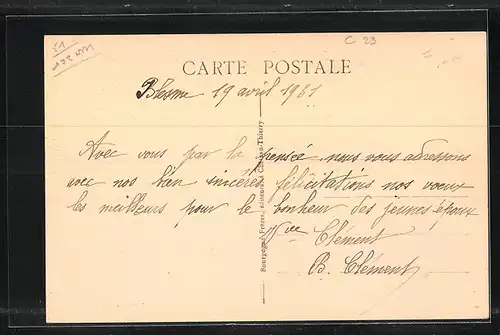 C 23
51
CARTE POSTALE
Blesme 19 avril 1931
Avec vous par la pensée, nous vous adressons
avec nos bien sincères félicitations nos voeux
les meilleurs pour le bonheur des jeunes époux
Clément
B. Clément
Bourgogne Frères, éditeurs à Château-Thierry